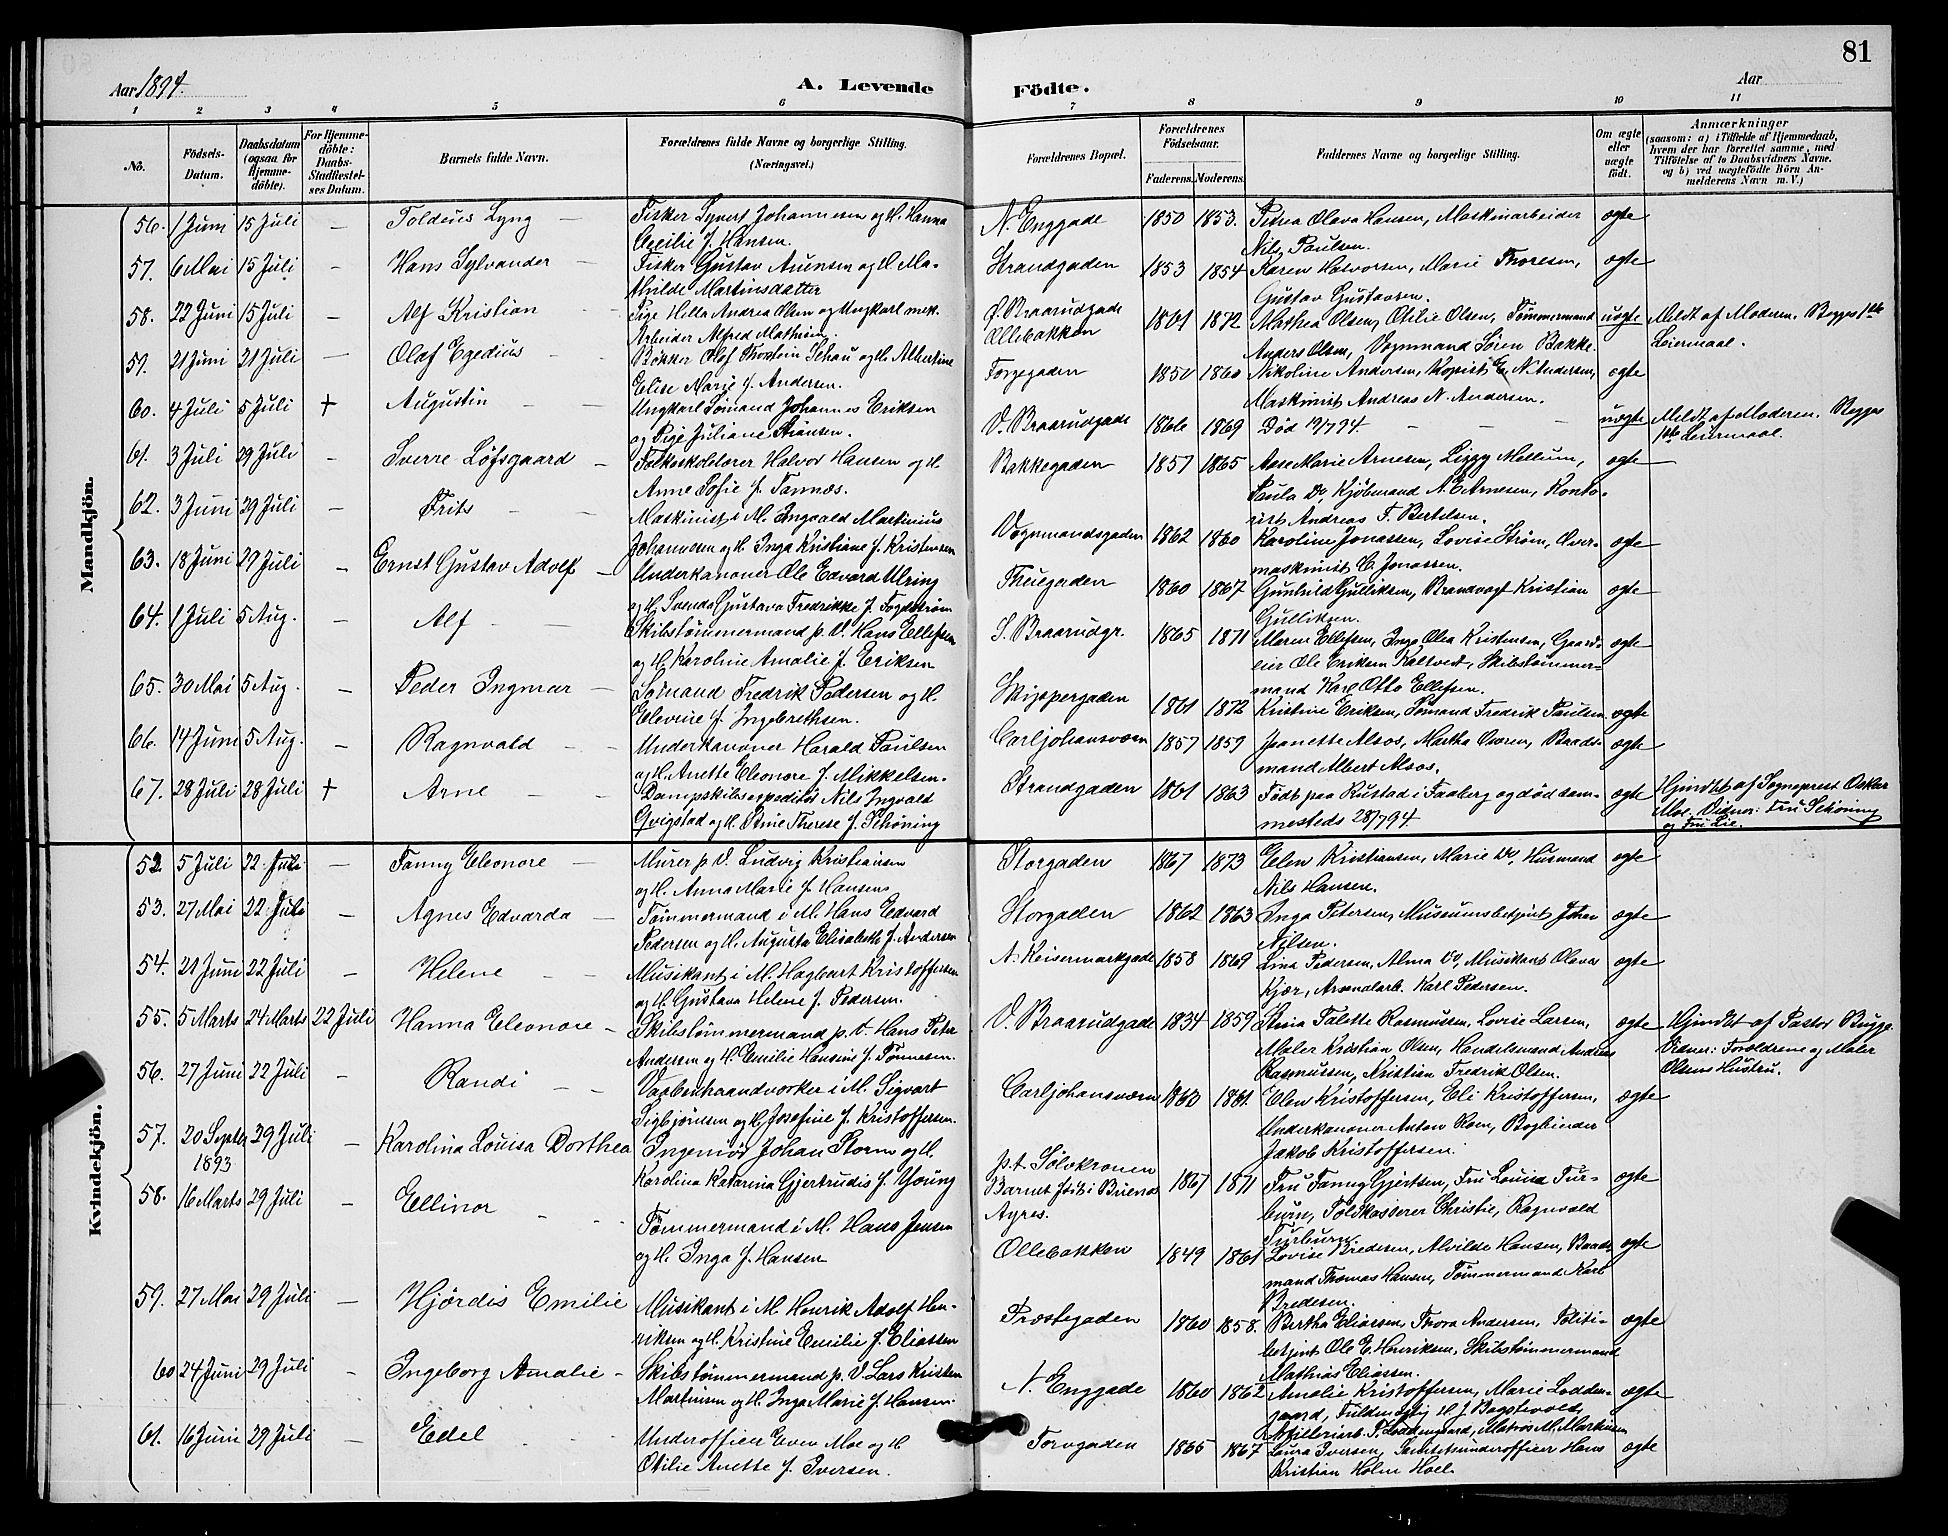 81
Aar 1894.
A. Levende Födte.
Aar
1 2 3 4 5 6 7 8 9 10 11
No.
Födsels-Datum.
Daabsdatum (ogsaa for Hjemme-döbte).
For Hjemme-döbte: Daabs-Stadfæstel-ses Datum.
Barnets fulde Navn.
Forældrenes fulde Navne og borgerlige Stilling. (Næringsvei.)
Forældrenes Bopæl.
Forældrenes Födselsaar.
Faderens. Moderens.
Faddernes Navne og borgerlige Stilling.
Om ægte eller uægte födt.
Anmærkninger
(saasom: a) i Tilfælde af Hjemmedaab,
hvem der har forrettet samme, med
Tilföielse af to Daabsvidners Navne.
og b) ved uægtefödte Börn An-
melderens Navn m. V.)
Mandkjön.
56. 1 Juni 15 Juli — Toldeus Lyng — Fisker Syvert Johannesen og H. Hanna N. Enggade 1850 1853. Petra Olava Hansen, Maskinarbeider ægte
Cecilie f. Hansen. Nils Paulsen.
57. 6 Mai 15 Juli — Hans Sylvander — Fisker Gustav Arensen og H. Ma- Strandgaden 1853 1854 Karen Halvorsen, Marie Thoresen, ægte
thilde Martinsdatter Gustav Gustavsen.
58. 22 Juni 15 Juli — Alf Kristian — Pige Hella Andrea Olsen og Ungkarl mek. Ø. Braarudgade 1861 1872 Mathea Olsen, Otilie Olsen, Tømmermand uægte Meldt af Moderen. Begges 1ste
Arbeider Alfred Mathisen. Ollebakken Anders Olsen, Vognmand Søren Bakke. Leiermaal.
59. 21 Juni 21 Juli — Olaf Egedius — Bøkker Olaf Thorstein Schau og H. Albertine Torgegaden 1850 1860 Nikoline Andersen, Kopist E. N. Andersen, ægte
Elise Marie f. Andersen. Maskinist Andreas N. Andersen.
60. 4 Juli 5 Juli + Augustin — Ungkarl Sømand Johannes Eriksen V. Braarudgade 1866 1869 Død 19/7 94. — uægte Meldt af Moderen. Begges
og Pige Juliane Hansen. 1ste Leiermaal.
61. 3 Juli 29 Juli — Sverre Løfsgaard — Folkeskolelærer Halvor Hansen og H. Bakkegaden 1857 1865 Aase Marie Arnesen, Lizzy Mellum, ægte
Anne Sofie f. Tannæs. Paula Do, Kjøbmand N. E. Arnesen, Konto-
rist Andreas F. Bertelsen.
62. 3 Juni 29 Juli — Frits — Maskinist i M. Ingvald Martinius Vognmandsgaden 1862 1860 Karoline Jonassen, Lovise Strøm, Over- ægte
Johannesen og H. Inga Kristiane f. Kristensen maskinist C. Jonassen.
63. 18 Juni 29 Juli — Ernst Gustav Adolf — Underkanoner Ole Edvard Ulring Thuegaden 1860 1867 Gunhild Gulliksen, Brandvagt Kristian ægte
og H. Svenda Gustava Fredrikke f. Fogdstrøm Gulliksen.
64. 1 Juli 5 Aug. — Alf — Skibstømmermand p. V. Hans Ellefsen S. Braarudgr. 1865 1871 Maren Ellefsen, Inga Olea Kristensen, Gaard- ægte
og H. Karoline Amalie f. Eriksen eier Ole Eriksen Kaltvedt, Skibstømmer-
mand Karl Otto Ellefsen.
65. 30 Mai 5 Aug. — Peder Ingmar — Sømand Fredrik Pedersen og H. Skippergaden 1861 1872 Kristine Eriksen, Sømand Fredrik Paulsen ægte
Elevine f. Ingebrethsen.
66. 14 Juni 5 Aug. — Ragnvald — Underkanoner Harald Paulsen Carljohansværn 1857 1859 Jeanette Alsos, Martha Osøren, Baads- ægte
og H. Anette Eleonore f. Mikkelsen. mand Albert Alsos.
67. 28 Juli 28 Juli + Arne — Dampskibsexpeditør Nils Ingvald Strandgaden 1861 1863 Født paa Rustad i Faaberg og død sam- ægte Hjemdøbt af Sogneprest Oskar
Qvigstad og H. Anne Therese f. Schøning mesteds 28/7 94. Moe. Vidner: Fru Schøning
og Fru Lie.
Kvindekjön.
52. 5 Juli 22 Juli — Fanny Eleonore — Murer p. V. Ludvig Kristiansen Storgaden 1867 1873 Elen Kristiansen, Marie Do, Husmand ægte
og H. Anna Marie f. Hansen Nils Hansen.
53. 27 Mai 22 Juli — Agnes Edvarda — Tømmermand i M. Hans Edvard Storgaden 1862 1863 Inga Petersen, Museumsbetjent Johan ægte
Pedersen og H. Augusta Elisabeth f. Andersen Nilsen.
54. 21 Juni 22 Juli — Helene — Musikant i M. Hagbart Kristoffersen A. Keisermarkgade 1858 1869 Lina Pedersen, Alma Do, Musikant Olaves ægte
og H. Gustava Helene f. Pedersen. Kjær, Arsenalarb. Karl Pedersen.
55. 5 Marts 24 Marts 22 Juli Hanna Eleonore — Skibstømmermand p. V. Hans Peter V. Braarudgade 1834 1859 Stina Talette Rasmussen, Lovise Larsen, ægte Hjemdøbt af Pastor Bugge.
Andersen og H. Emilie Hansine f. Tønnesen. Maler Kristian Olsen, Handelsmand Andreas Vidner: Forældrene og Maler
Rasmussen, Kristian Fredrik Olsen. Olsens Hustru.
56. 27 Juni 22 Juli — Randi — Vaabenhaandværker i M. Sigvart Carljohansværn 1863 1861. Elen Kristoffersen, Eli Kristoffersen, ægte
Sigbjørnsen og H. Josefine f. Kristoffersen. Underkanoner Anton Roen, Bogbinder
Jakob Kristoffersen.
57. 20 Septbr 1893 29 Juli — Karolina Louisa Dorthea Ingeniør Johan Storm og H. p.t. Sølvkronen 1867 1871 Fru Fanny Gjertsen, Fru Louisa Tur- ægte
Karolina Katarina Gjertrudis f. Young Barnet født i Buenos Ayres. burn, Toldkasserer Christie, Ragnvald
Turburn.
58. 16 Marts 29 Juli — Ellinor — Tømmermand i M. Hans Jensen Ollebakken 1849 1861 Lovise Bredesen, Alvilde Hansen, Baads- ægte
og H. Inga f. Hansen mand Thomas Hansen, Tømmermand Karl
Bredesen.
59. 27 Mai 29 Juli — Hjørdis Emilie Musikant i M. Henrik Adolf Hen- Præstegaden 1860 1858. Bertha Eliassen, Thora Andersen, Politi- ægte
riksen og H. Kristine Emilie f. Eliassen betjent Ole E. Henriksen, Skibstømmermand
Mathias Eliassen.
60 24 Juni 29 Juli — Ingeborg Amalie — Skibstømmermand p. V. Lars Kristen N. Enggade 1860 1862 Amalie Kristoffersen, Marie Lodden- ægte
Martinsen og H. Inga Marie f. Hansen. gaard,
Artilleriarb. P. Loddengaard, Matros M. Martinsen
61. 16 Juni 29 Juli — Edel Underofficer Even Moe og H. Torvgaden 1865 1867 Laura Iversen, Sanitetsunderofficer Hans ægte
Otilie Anette f. Iversen. Kristian Holm Hoel.